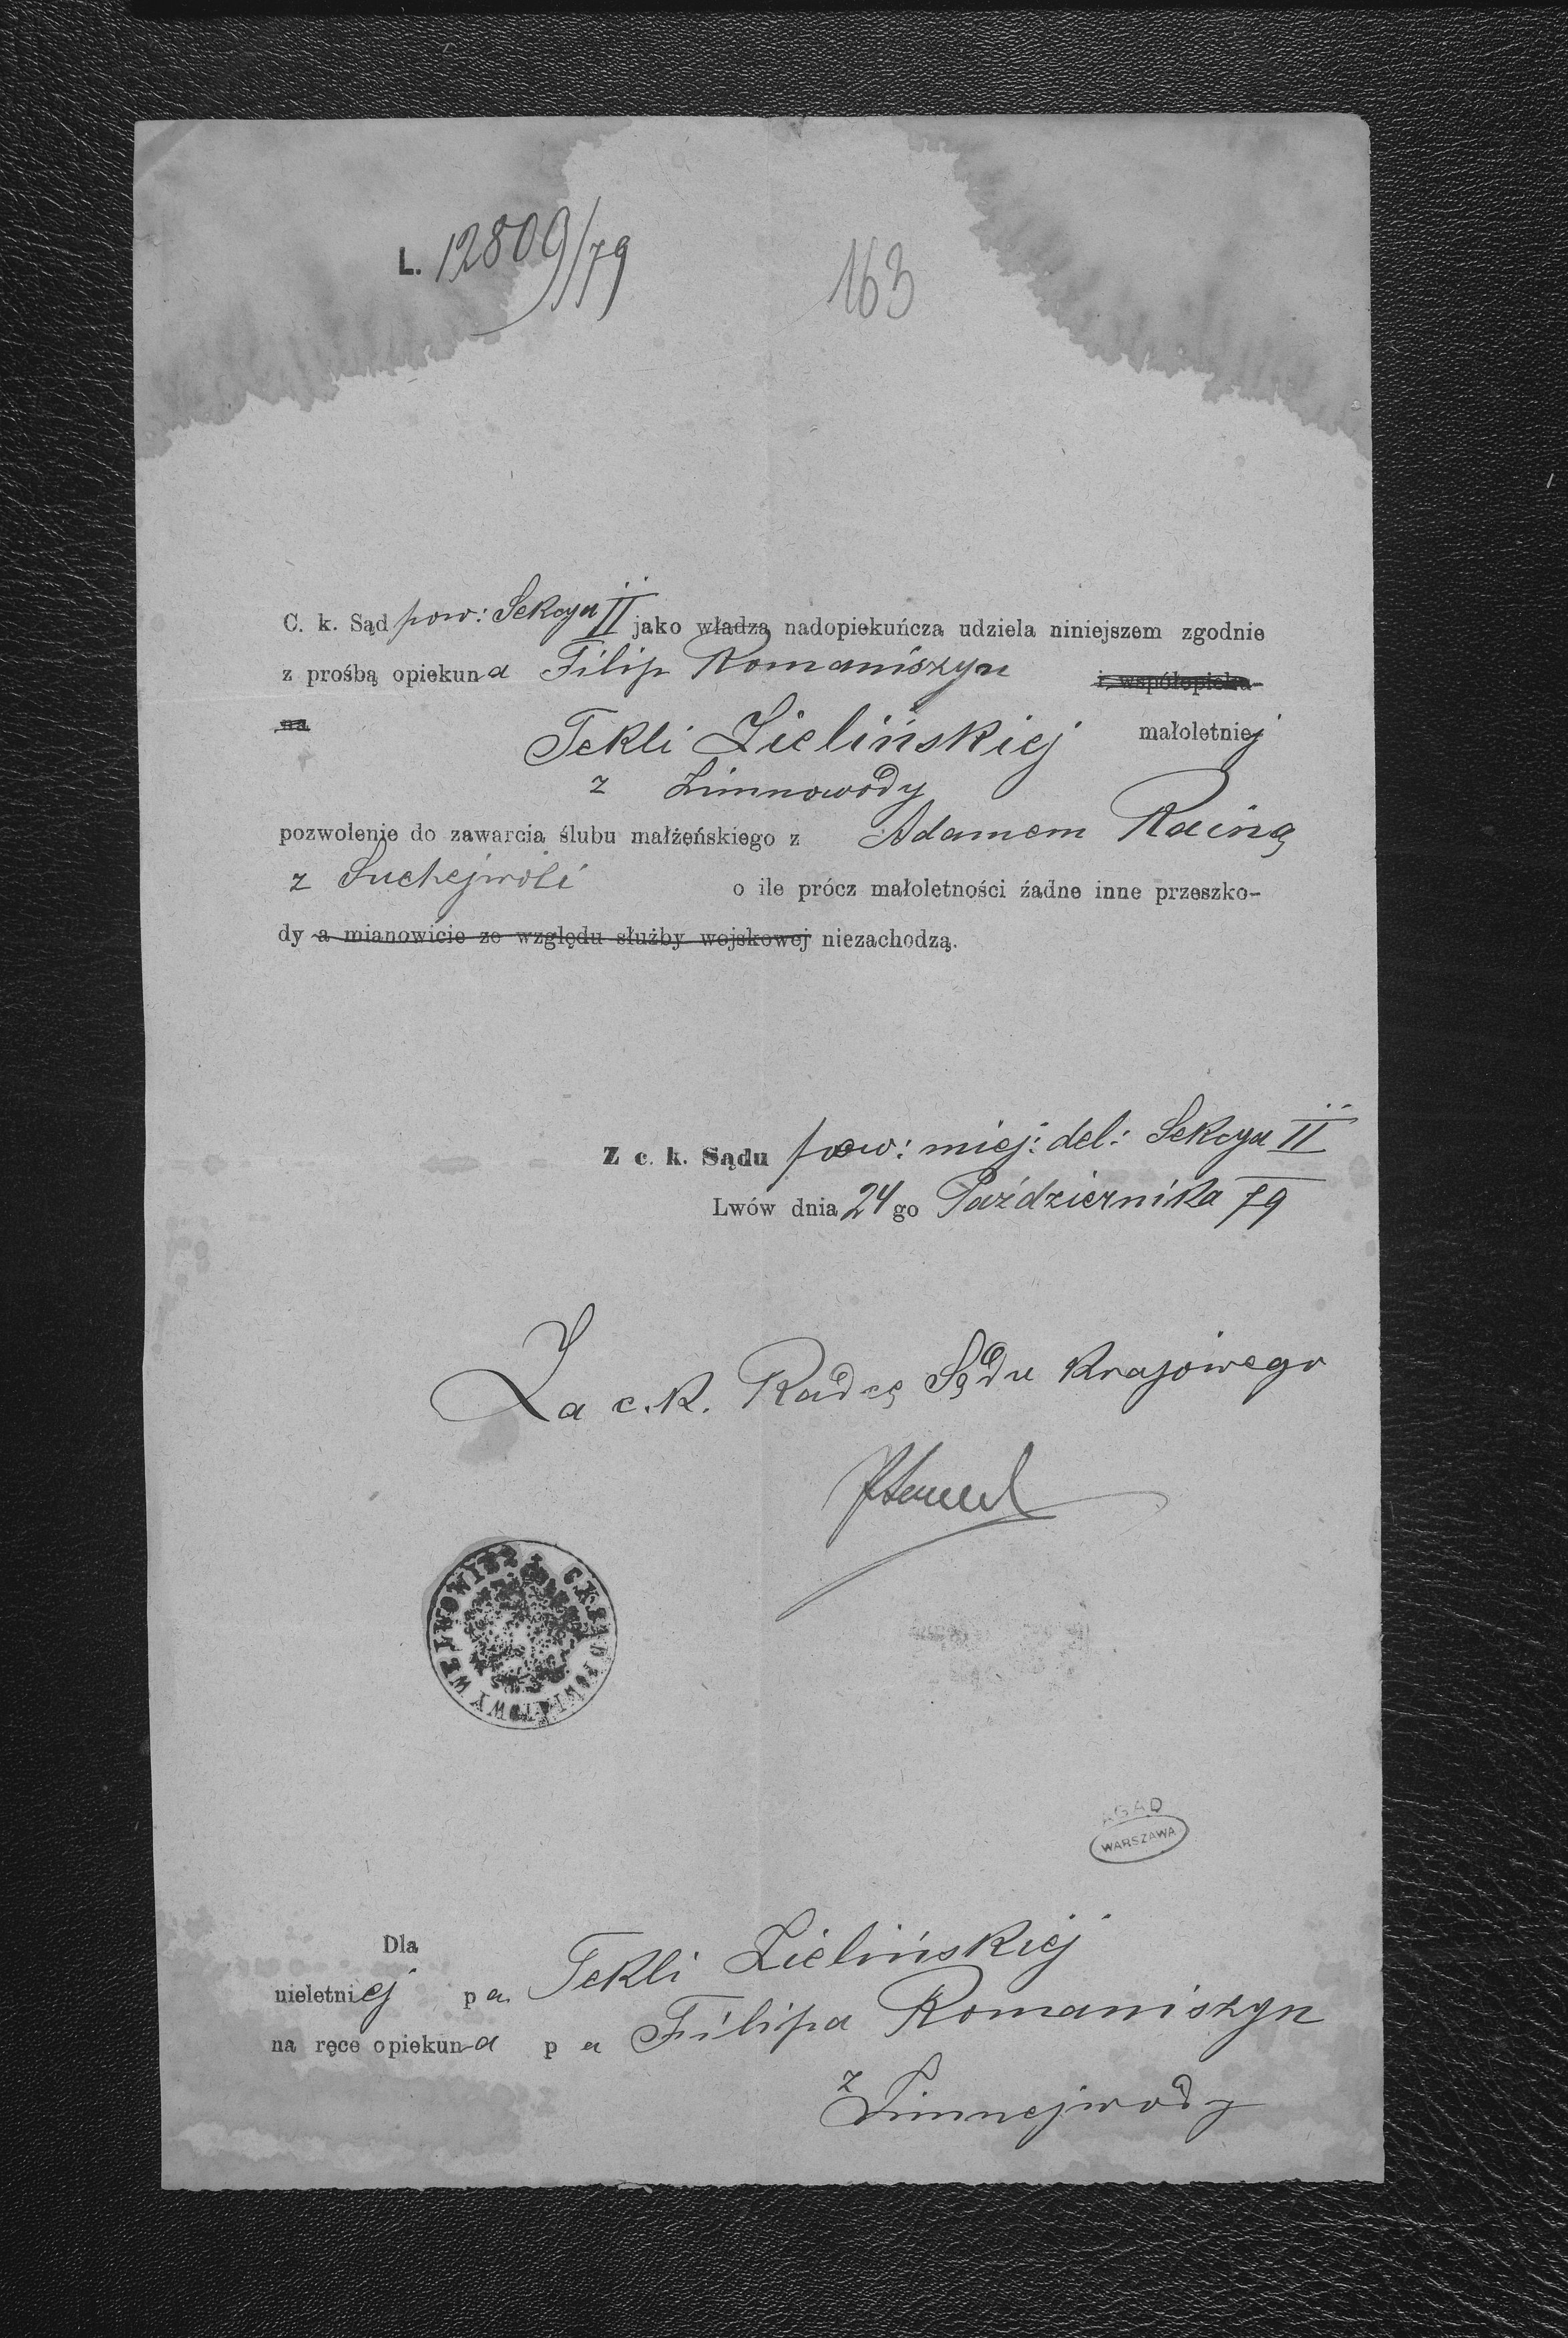 L. 12809/79
163
C. k. Sąd pow: Sekcya II jako władza nadopiekuńcza udziela niniejszem zgodnie
z prośbą opiekuna Filip Romaniszyn i współopieku-
na Tekli Zielińskiej małoletniej
z Zimnowody
pozwolenie do zawarcia ślubu małżeńskiego z Adamem Rainą
z Suchejwoli o ile prócz małoletności żadne inne przeszko-
dy a mianowicie ze względu służby wojskowej niezachodzą.
Z c. k. Sądu pow: miej: del: Sekcya II
Lwów dnia 24 go Października 79
Za c.k. Radcę Sądu Krajowego
C.K. SĄD POWIATOWY WE LWOWIE
AGAD
WARSZAWA
Dla
nieletniej pa. Tekli Zielińskiej
na ręce opiekuna pa Filipa Romaniszyn
z Zimnejwody